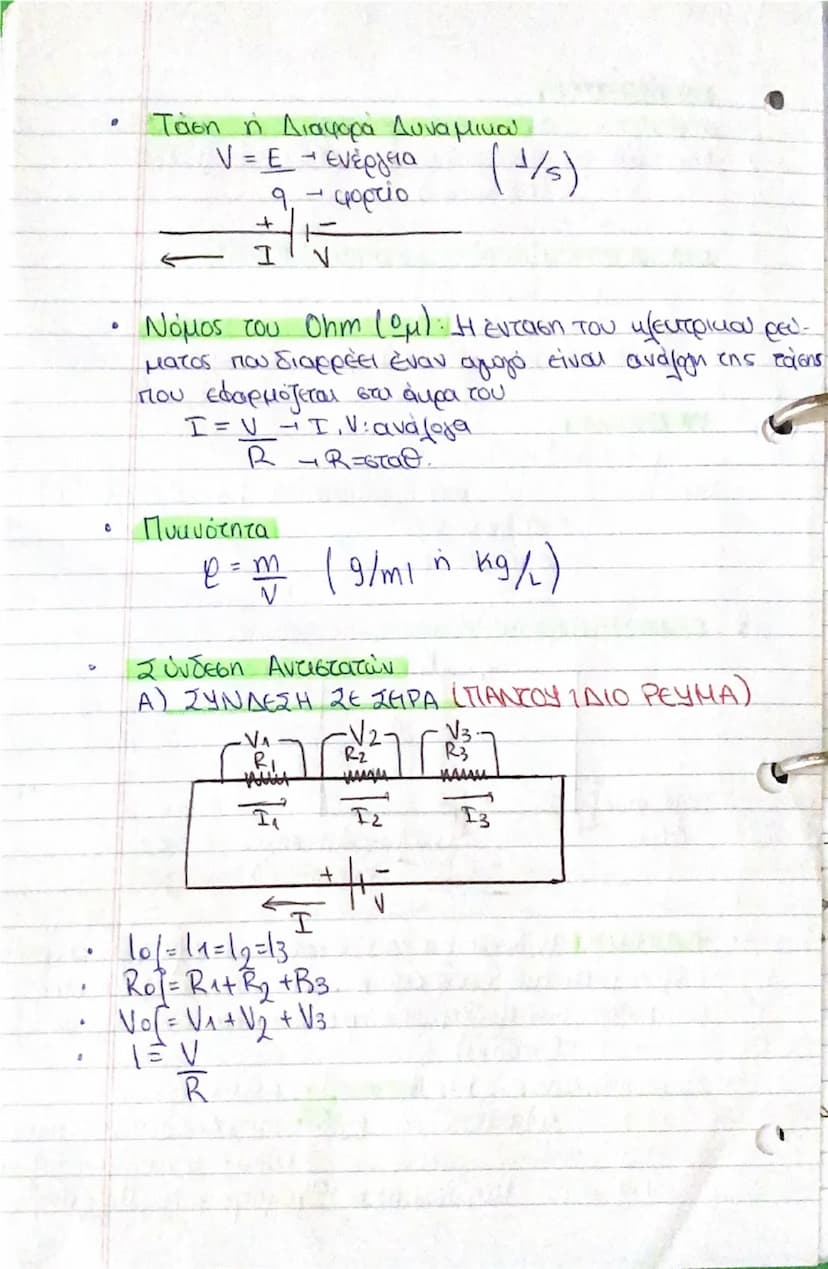 • Τάση ή Διαφορά Δυναμικού
V = E → ενέργεια (J/s)
q → φορτίο
+ −
I V
• Νόμος του Ohm (Ωμ): Η ένταση του ηλεκτρικού ρεύ-
ματος που διαρρέει έναν αγωγό είναι ανάλογη της τάσης
που εφαρμόζεται στα άκρα του
I = V → I, V: ανάλογα
R → R=σταθ.
• Πυκνότητα
ρ = m (g/ml ή kg/L)
V
• Σύνδεση Αντιστατών
Α) ΣΥΝΔΕΣΗ ΣΕ ΣΕΙΡΑ (ΠΑΝΤΟΥ ΙΔΙΟ ΡΕΥΜΑ)
V1 V2 V3
R1 R2 R3
I1 I2 I3
+ −
I V
• Iολ = I1 = I2 = I3
• Rολ = R1 + R2 + R3
• Vολ = V1 + V2 + V3
• I = V
R